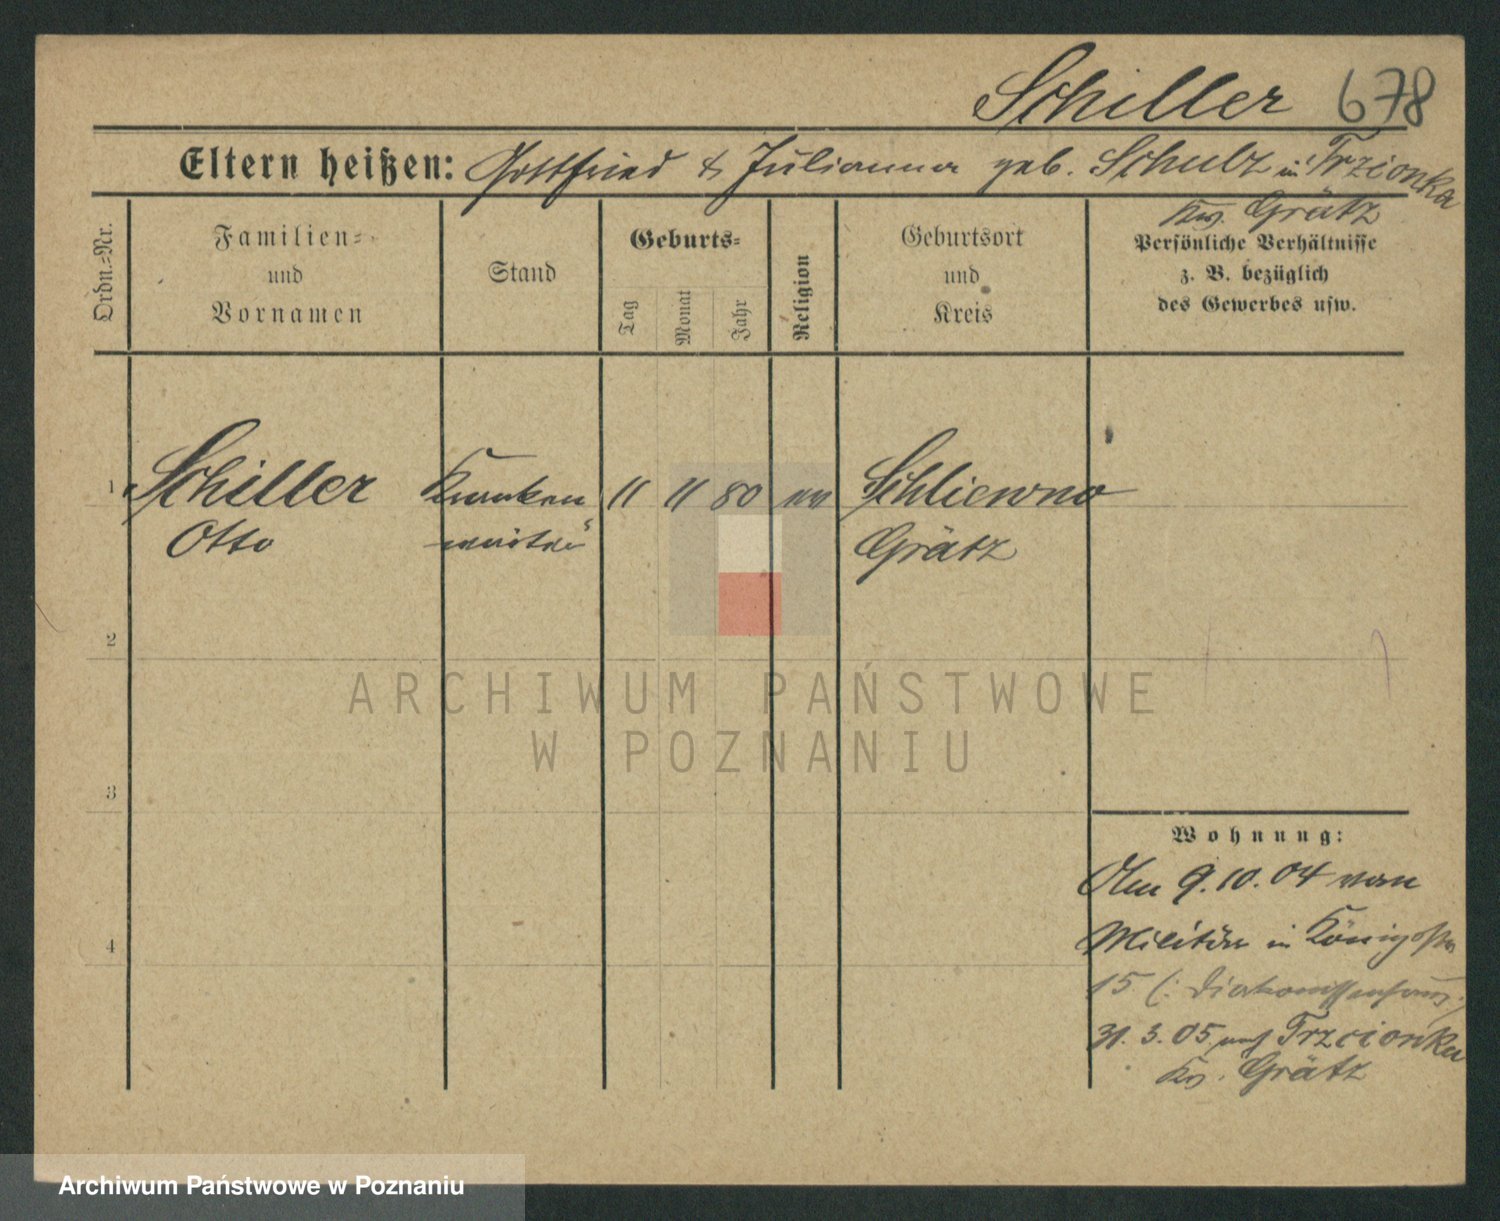 Schiller 678
Eltern heißen: Gottfried & Julianna geb. Schulz in Trzionka
Krs. Grätz
Ordn.-Nr.
Familien-
und
Vornamen
Stand
Geburts-
Tag
Monat
Jahr
Religion
Geburtsort
und
Kreis
Persönliche Verhältnisse
z. B. bezüglich
des Gewerbes usw.
1 Schiller Kranken 11 11 80 Schliewno
Otto Grätz
2
3
4
Wohnung:
9.10.04 vom
Militär in Königsstr.
15 (: Diakonissenhaus :)
31.3.05 nach Trzcionka
Krs. Grätz
ARCHIWUM PAŃSTWOWE
W POZNANIU
Archiwum Państwowe w Poznaniu